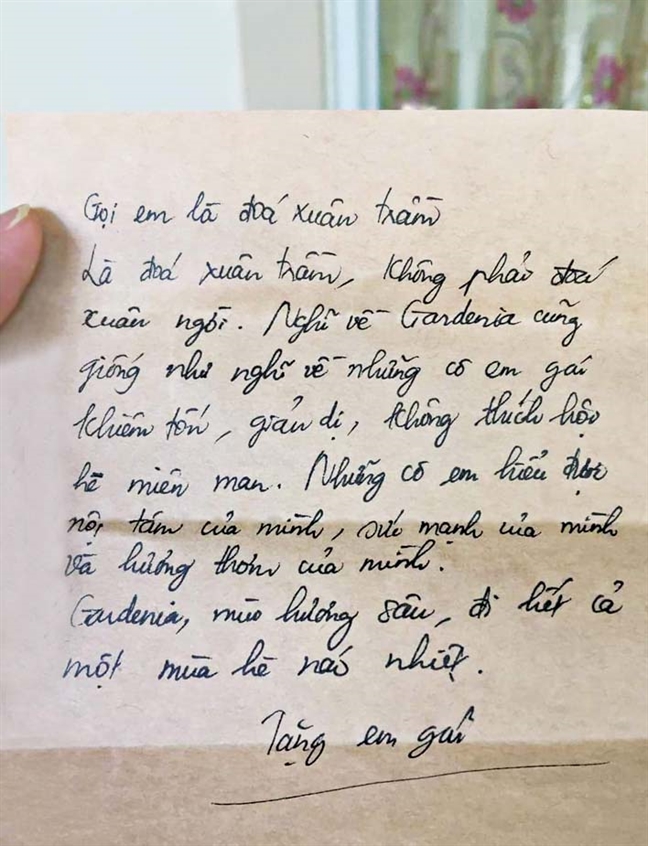 Gọi em là đoá xuân trầm
Là đoá xuân trầm, không phải đoá
xuân ngời. Nghĩ về Gardenia cũng
giống như nghĩ về những cô em gái
khiêm tốn, giản dị, không thích hội
hè miên man. Những cô em hiểu được
nội tâm của mình, sức mạnh của mình
và hương thơm của mình.
Gardenia, mùi hương sâu, đi hết cả
một mùa hè náo nhiệt.
Tặng em gái